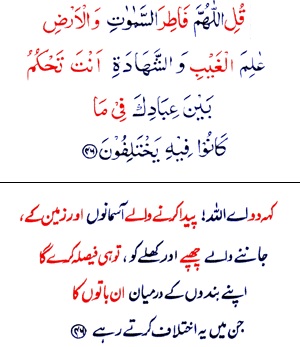 قُلِ اللّٰهُمَّ فَاطِرَ السَّمٰوٰتِ وَالْاَرْضِ
عٰلِمَ الْغَيْبِ وَالشَّهَادَةِ اَنْتَ تَحْكُمُ
بَيْنَ عِبَادِكَ فِيْ مَا
كَانُوْا فِيْهِ يَخْتَلِفُوْنَ ﴿۴۶﴾
کہہ دو اے اللہ! پیدا کرنے والے آسمانوں اور زمین کے،
جاننے والے چھپے اور کھلے کو، تو ہی فیصلہ کرے گا
اپنے بندوں کے درمیان ان باتوں کا
جن میں یہ اختلاف کرتے رہے ﴿۴۶﴾